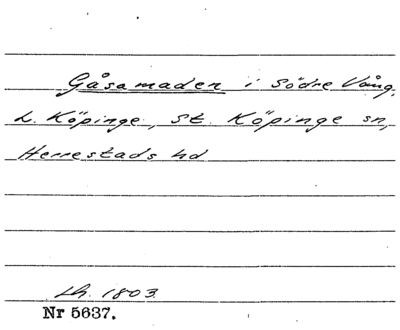 Gåsamaden i Södre Vång,
L. Köpinge, St. Köpinge sn,
Herrestads hd
Lh. 1803.
Nr 5637.